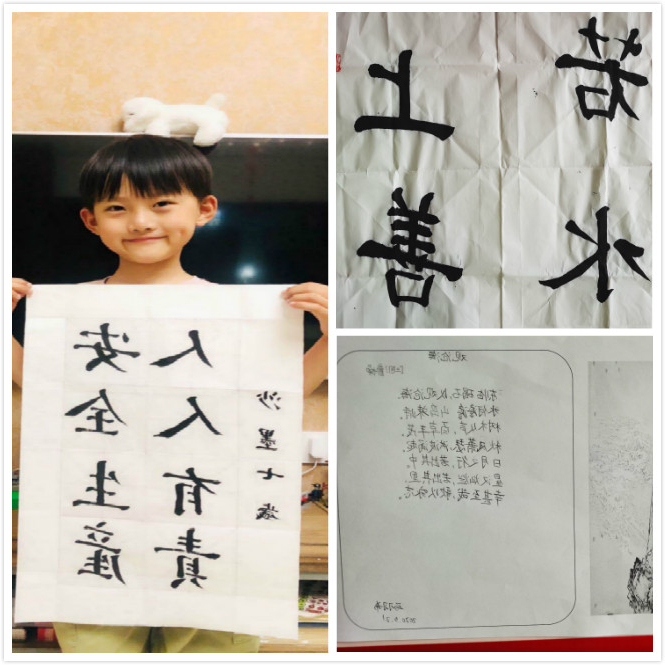 安全生產
人人有責
沙墨七歲
上善
若水
观沧海
曹操
东临碣石,以观沧海。
水何澹澹,山岛竦峙。
树木丛生,百草丰茂。
秋风萧瑟,洪波涌起。
日月之行,若出其中。
星汉灿烂,若出其里。
幸甚至哉,歌以咏志。